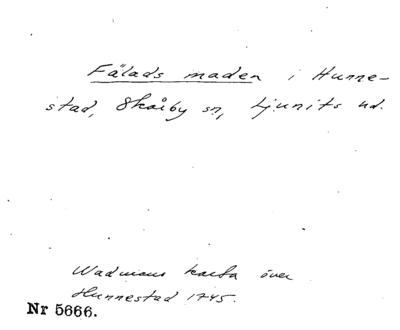 Fälads maden i Hunne-
stad, Skårby sn, Ljunits hd.
Wadmans karta över
Hunnestad 1745.
Nr 5666.